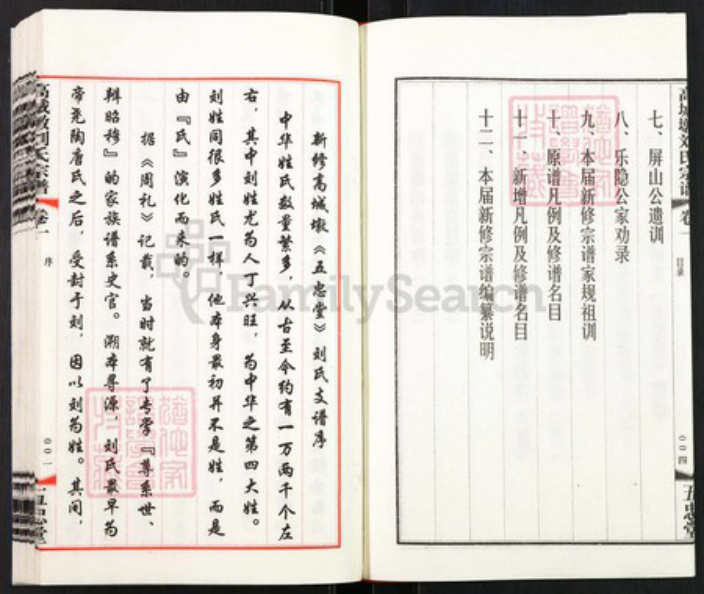 七、屏山公遗训
八、乐隐公家劝录
九、本届新修宗谱家规祖训
十、原谱凡例及修谱名目
十一、新增凡例及修谱名目
十二、本届新修宗谱编纂说明
卷一
目录
〇〇四
五忠堂
新修高城墩《五忠堂》刘氏支谱序
中华姓氏数量繁多，从古至今约有一万两千个左
右，其中刘姓尤为人丁兴旺，为中华之第四大姓。
刘姓同很多姓氏一样，他本身最初并不是姓，而是
由『氏』演化而来的。
据《周礼》记载，当时就有了专掌『尊系世、
辩昭穆』的家族谱系史官。溯本寻源，刘氏最早为
帝尧陶唐氏之后，受封于刘，因以刘为姓。其间，
高城墩刘氏宗谱
卷一
序
〇〇一
五忠堂
FamilySearch